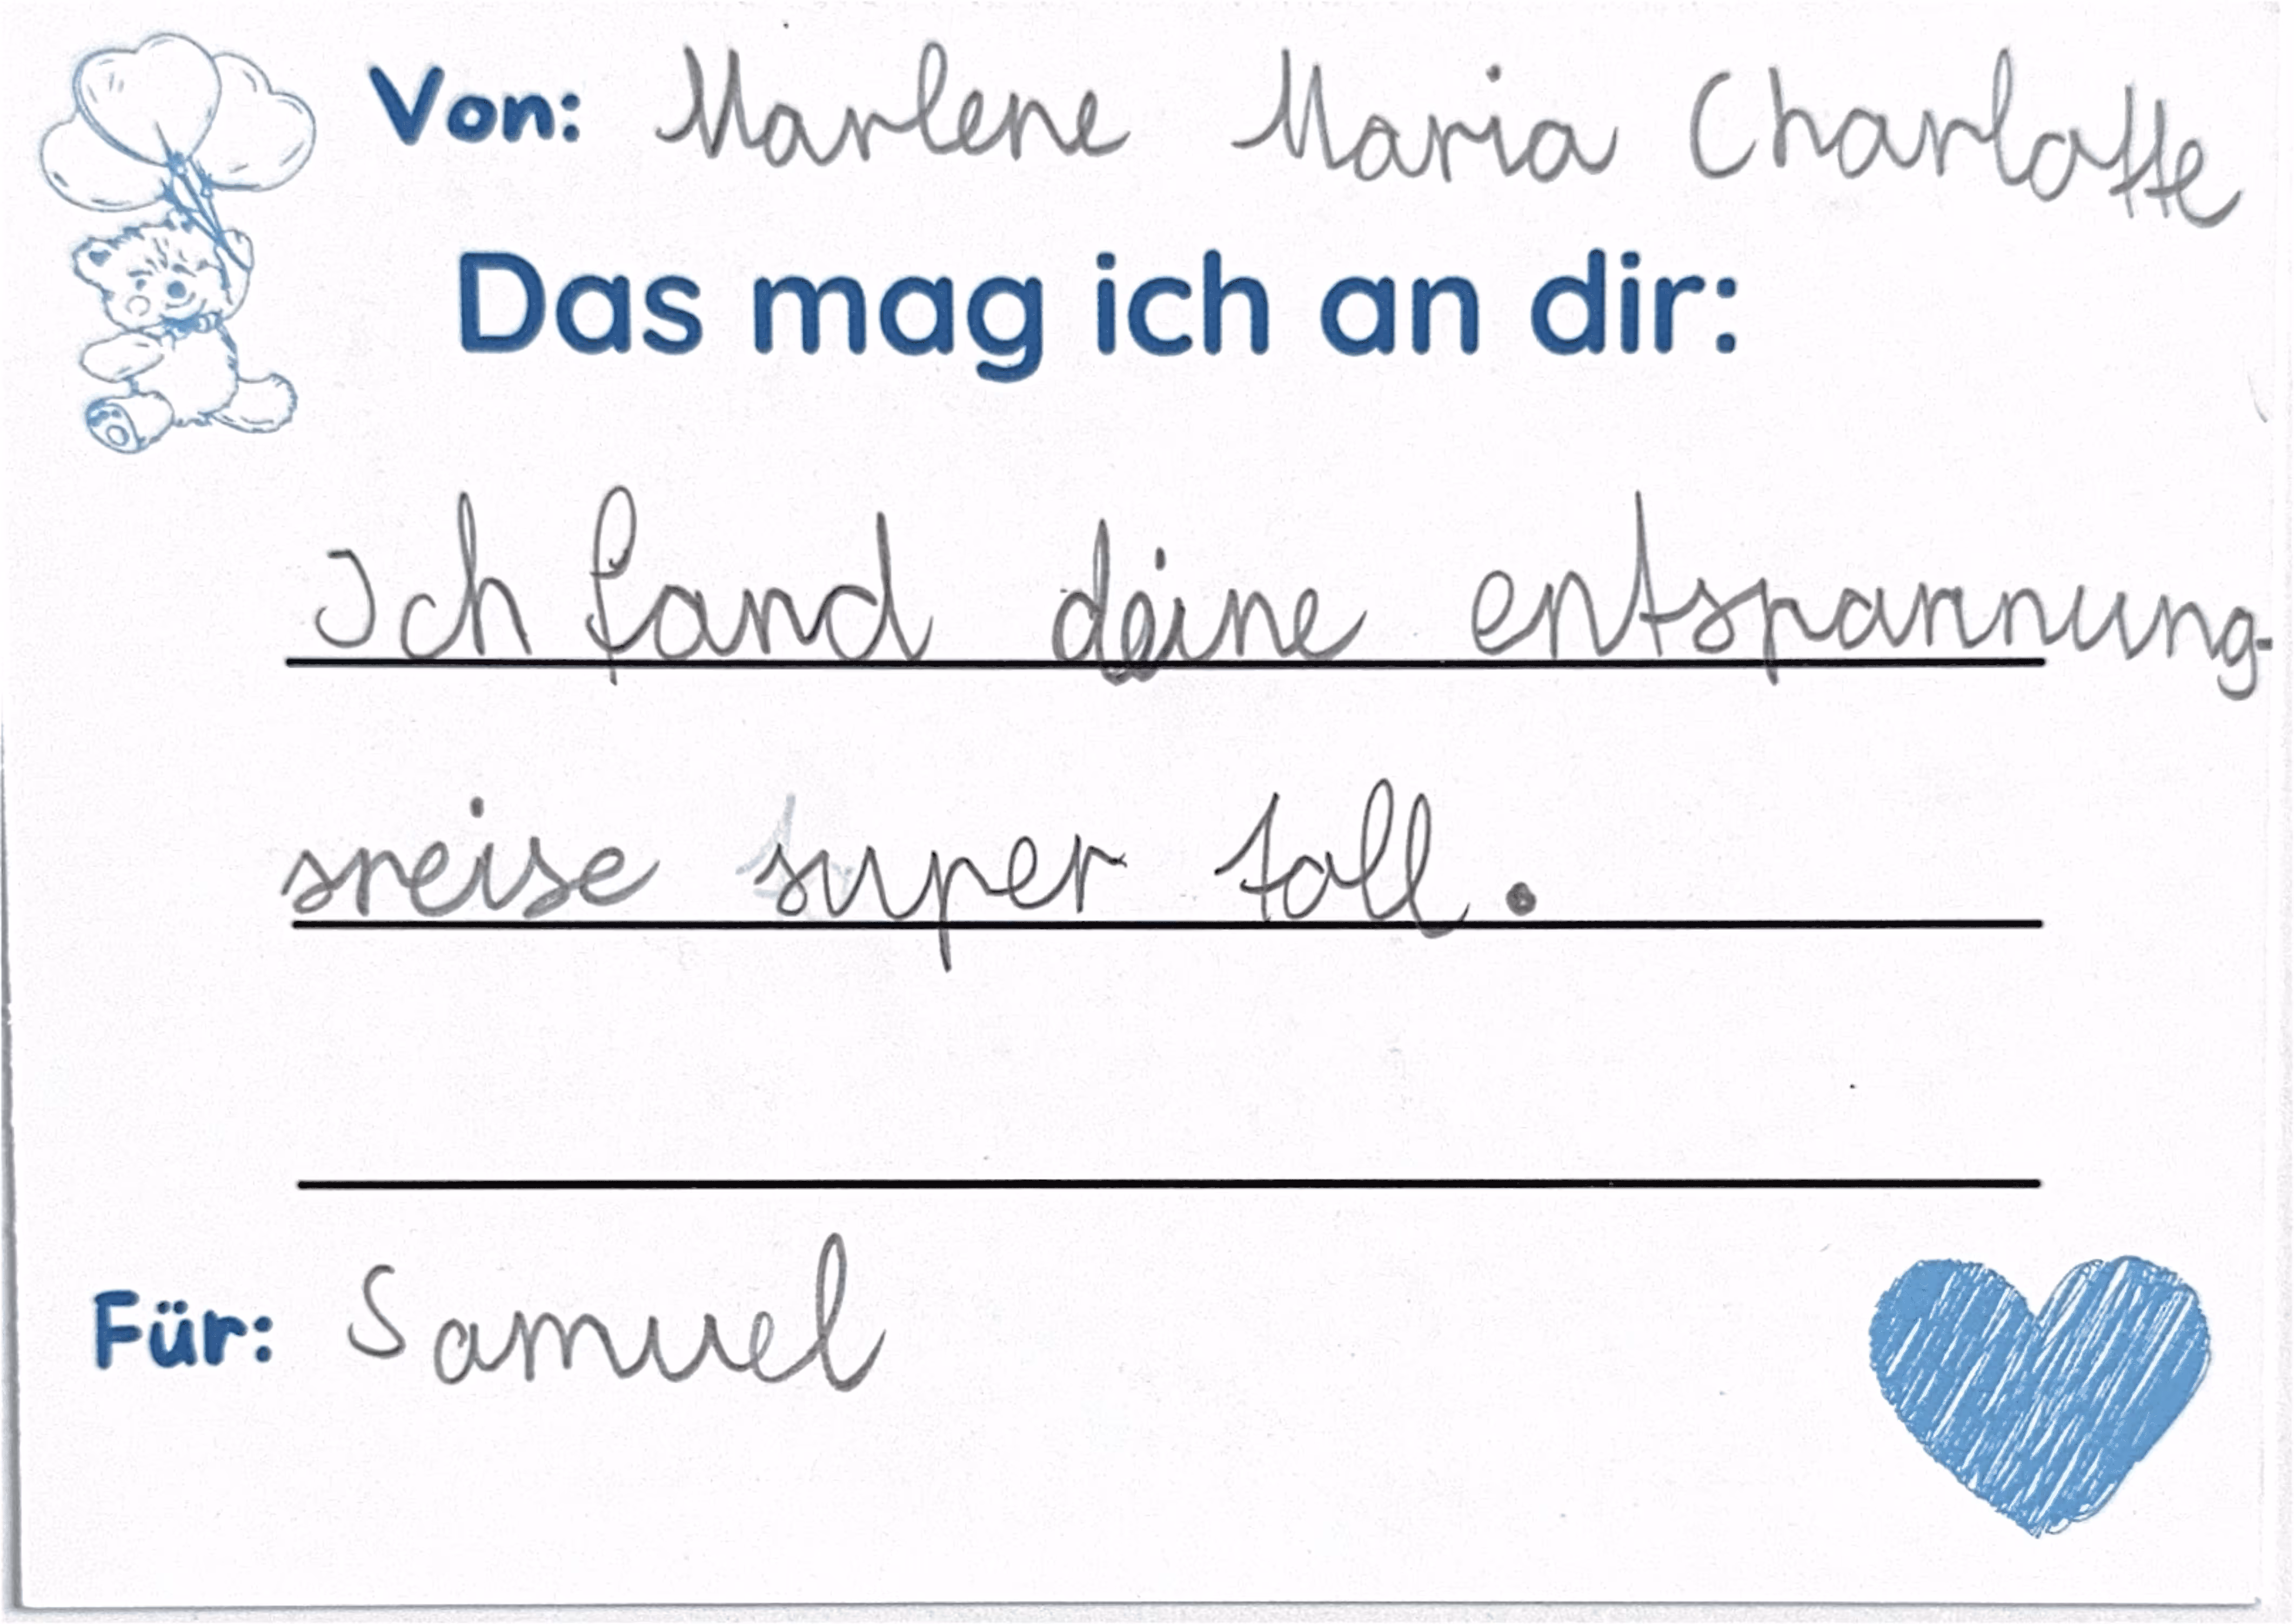 Von: Marlene Maria Charlotte
Das mag ich an dir:
Ich fand deine entspannung-
sreise super toll.
Für: Samuel